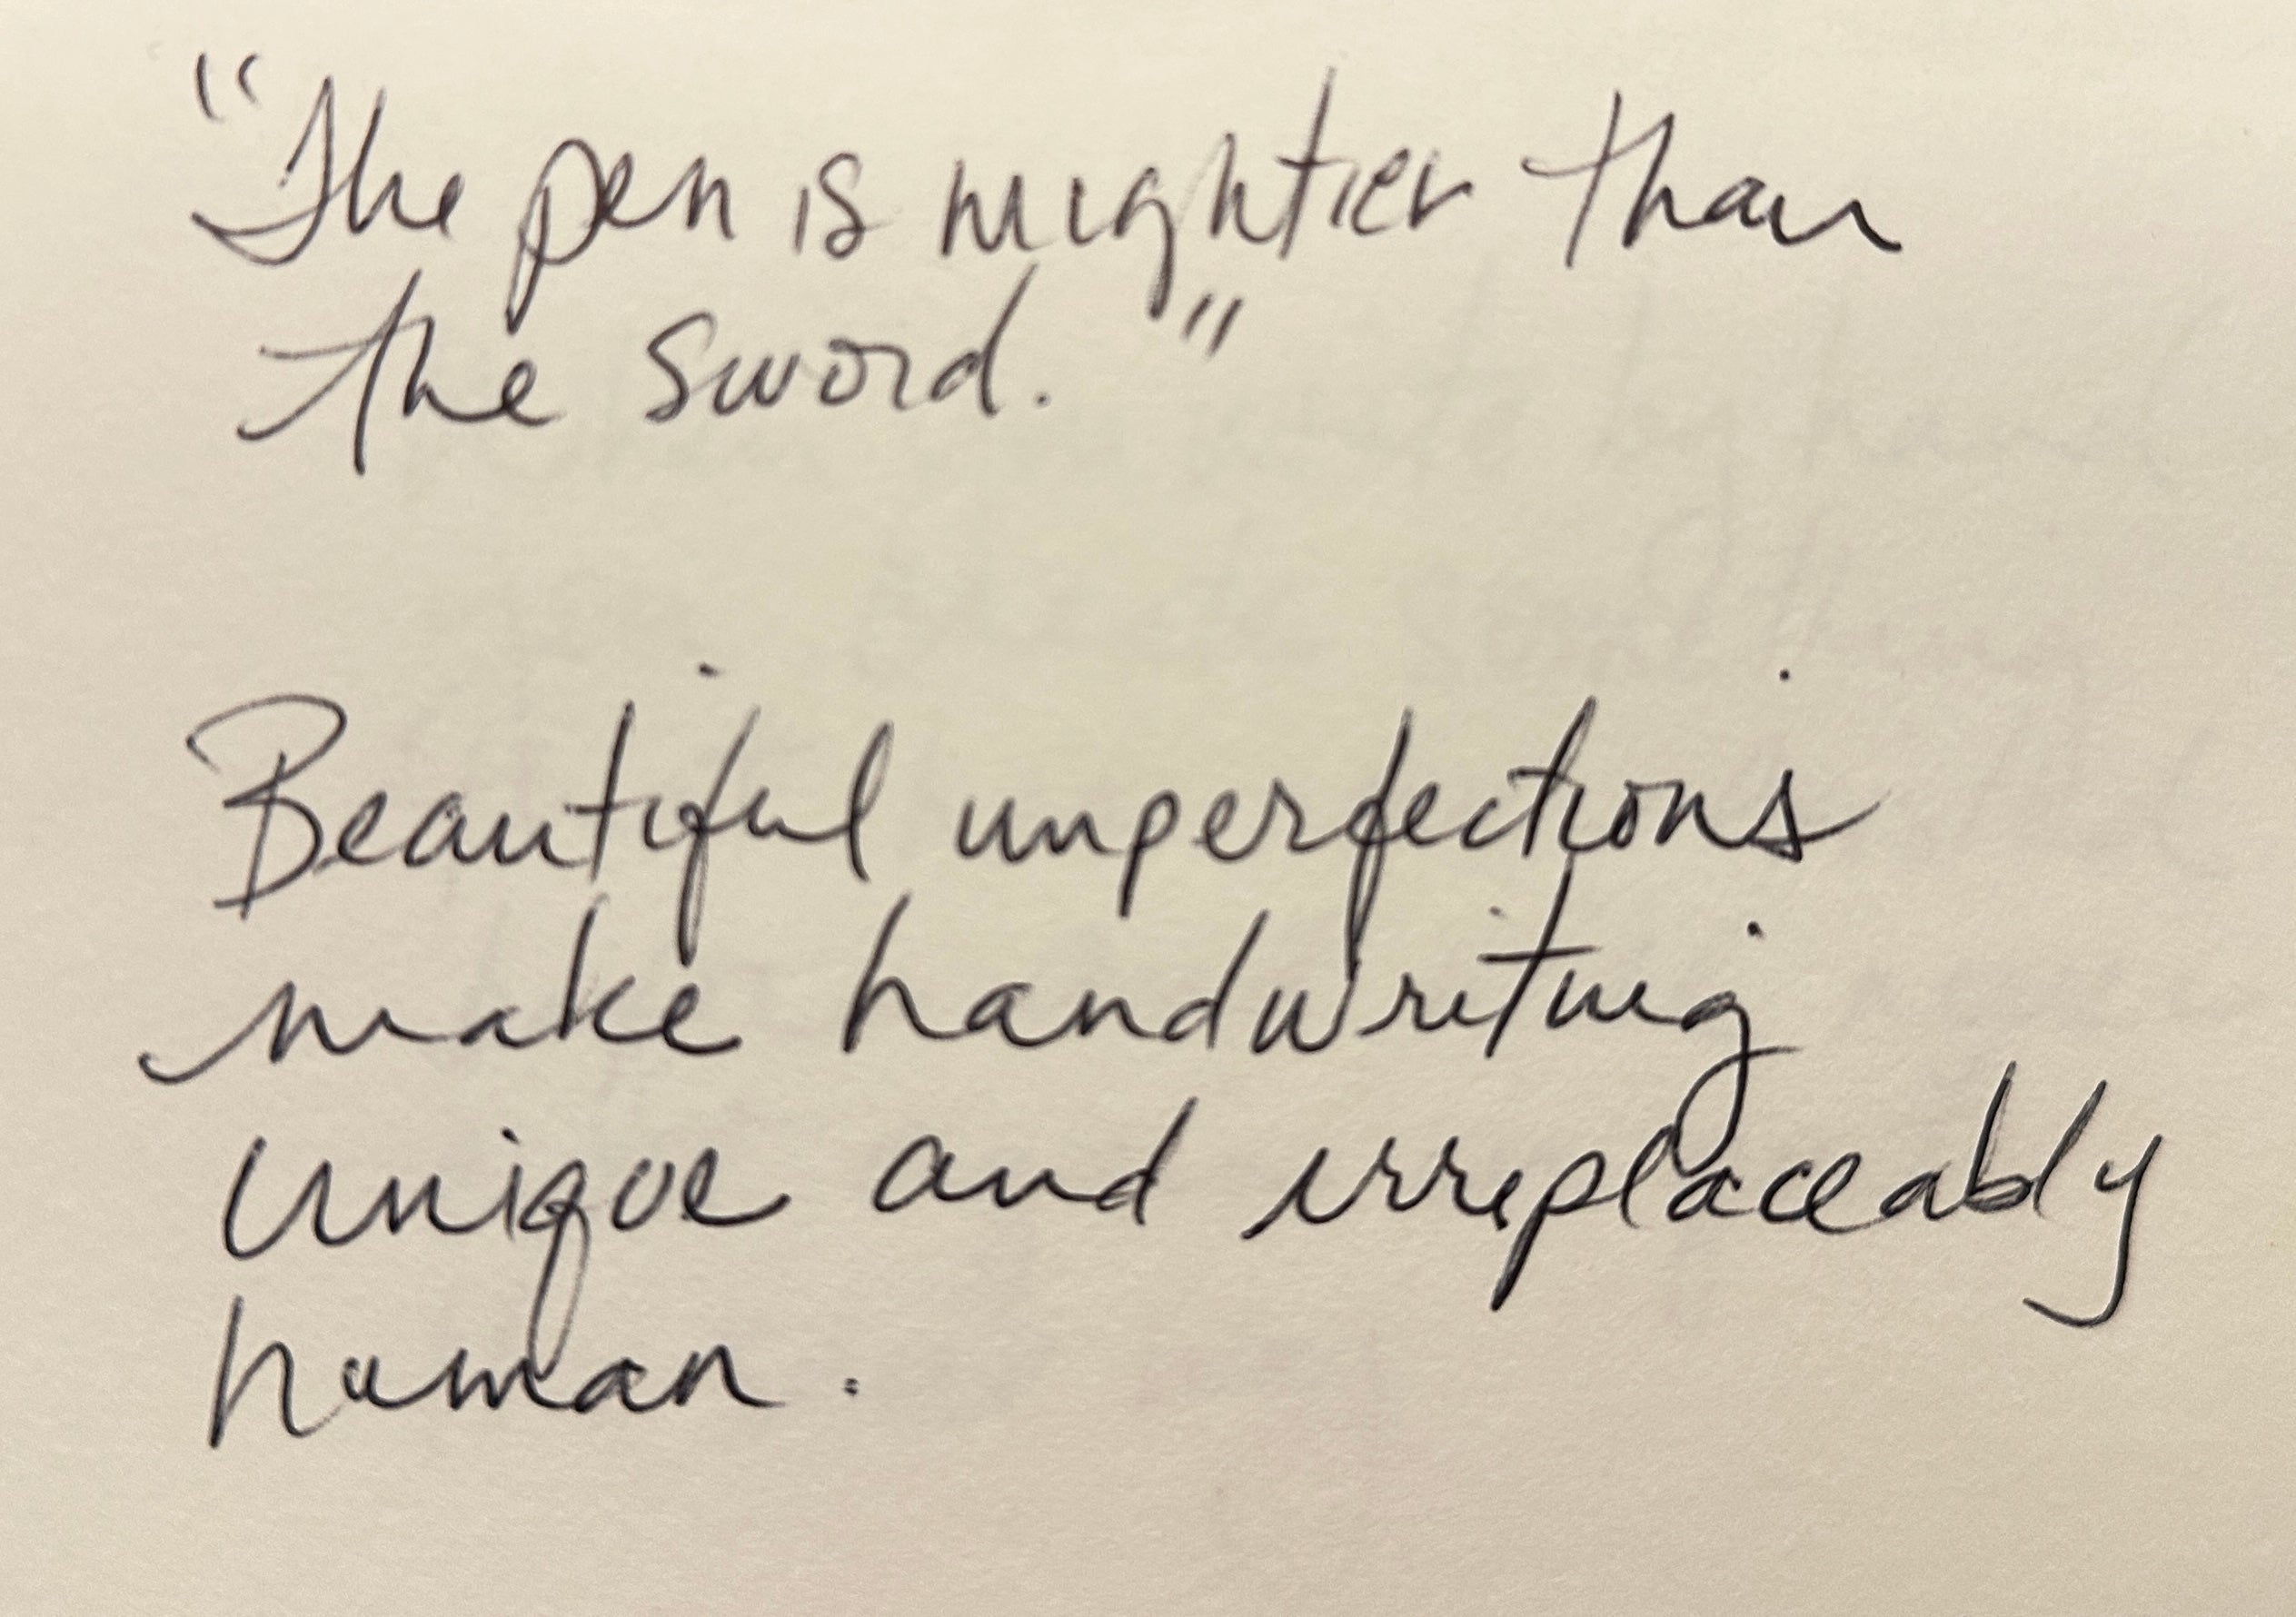 "The pen is mightier than
the sword."
Beautiful imperfections
make handwriting
unique and irreplaceably
human.